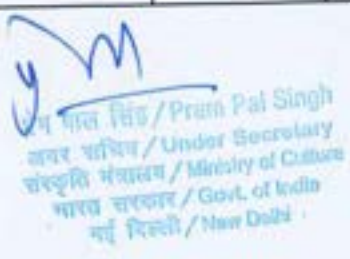 पाल सिंह / Prem Pal Singh
अवर सचिव / Under Secretary
संस्कृति मंत्रालय / Ministry of Culture
भारत सरकार / Govt. of India
नई दिल्ली / New Delhi